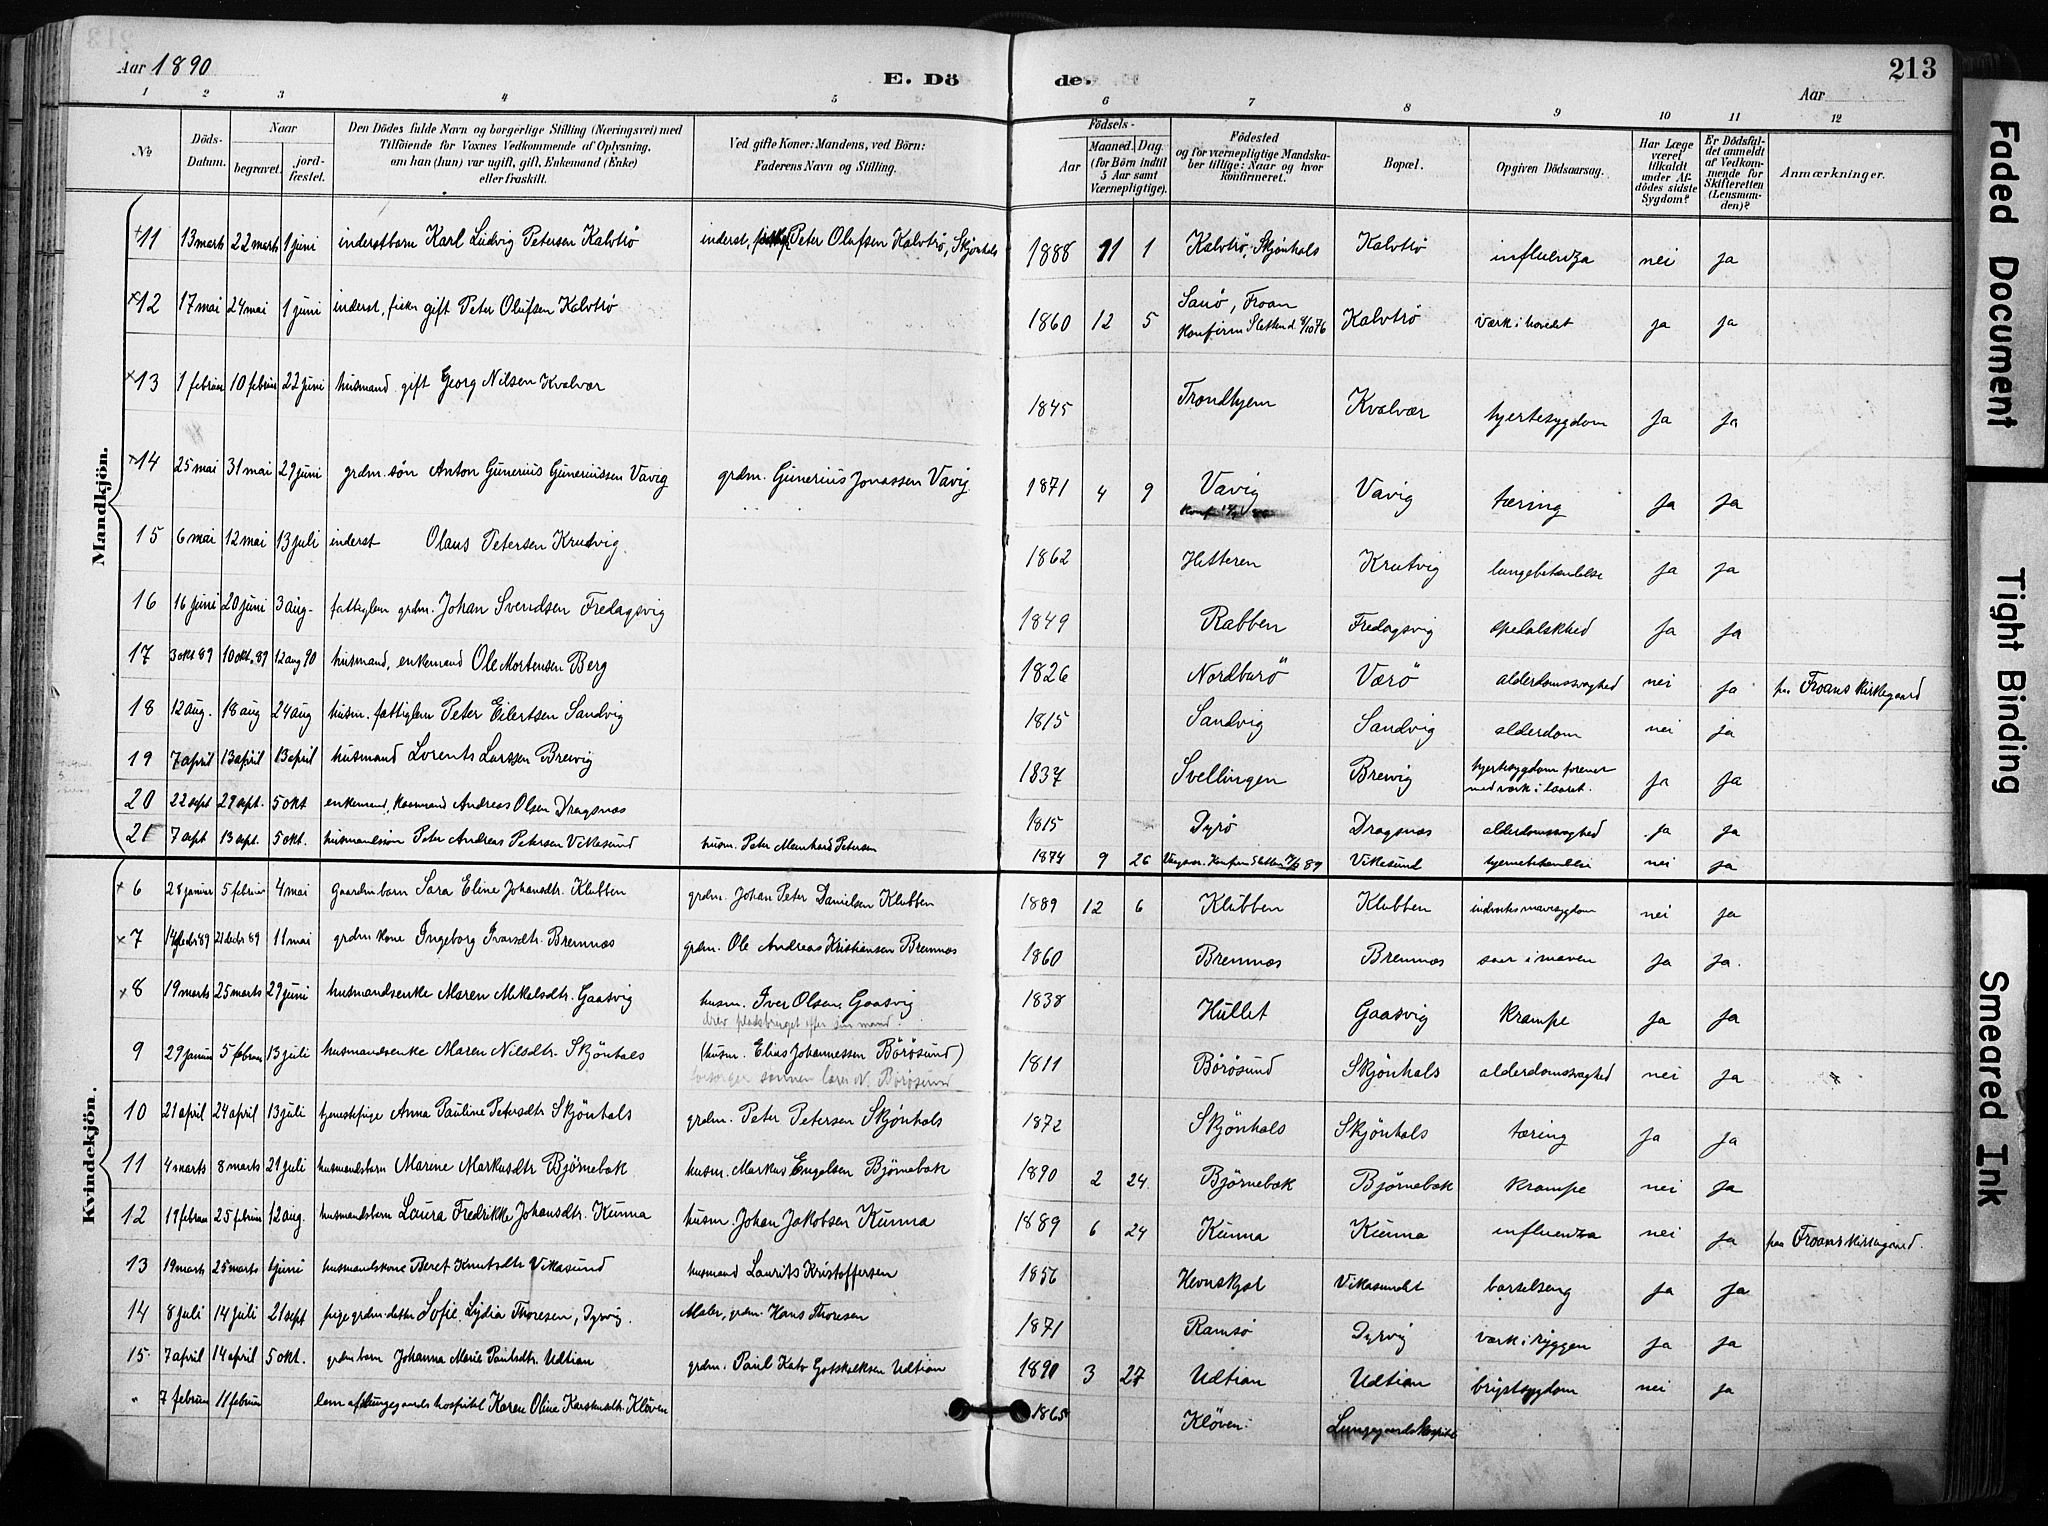 Aar 1890 E. Dö de. Aar 213
1 2 3 4 5 6 7 8 9 10 11 12
No Döds-Datum. Naar begravet. jordfæstet. Den Dödes fulde Navn og borgerlige Stilling (Næringsvei) med Tilföiende for Voxnes Vedkommende af Oplysning, om han (hun) var ugift, gift, Enkemand (Enke) eller fraskilt. Ved gifte Koner: Mandens, ved Börn: Faderens Navn og Stilling. Födsels- Aar Maaned. Dag. (for Börn indtil 5 Aar samt Værnepligtige). Födested og for værnepligtige Mandskaber tillige: Naar og hvor Konfirmeret. Bopæl. Opgiven Dödsaarsag. Har Læge været tilkaldt under Afdödes sidste Sygdom? Er Dödsfaldet anmeldt af Vedkommende for Skifteretten (Lensmanden)? Anmærkninger.
Mandkjön.
+11 13 marts 22 marts 1 juni inderstbarn Karl Ludvig Petersen Kalvtrö inderst, Peter Olufsen Kalvtrö, Skjönhals 1888 11 1 Kalvtrö, Skjönhals Kalvtrö influenza nei ja
×12 17 mai 24 mai 1 juni inderst, fisker gift Peter Olufsen Kalvtrö 1860 12 5 Sanö, Froan Konfirm Sletten d. 8/10 76 Kalvtrö værk i hovedet ja ja
×13 1 februar 10 februar 22 juni husmand gift Georg Nilsen Kvalvær 1845 Trondhjem Kvalvær hjertesygdom ja ja
×14 25 mai 31 mai 29 juni grdm. sön Anton Gunerius Guneriussen Vavig grdm. Gunerius Jonassen Vavig 1871 4 9 Vavig Vavig tæring ja ja
15 6 mai 12 mai 13 juli inderst Olaus Petersen Krutvig. 1862 Hitteren Krutvig lungebetændelse ja ja
16 16 juni 20 juni 3 aug. fattiglem grdm. Johan Svendsen Fredagsvig 1849 Rabben Fredagsvig spedalskhed ja ja
17 3 okt 89 10 okt. 89 12 aug 90 husmand, enkemand Ole Mortensen Berg 1826 Nordburö Værö alderdomssvaghed nei ja paa Froans kirkegaard
18 12 aug. 18 aug 24 aug husm. fattiglem Peter Eilertsen Sandvig 1815 Sandvig Sandvig alderdom nei ja
19 7 april 13 april 13 april husmand Lorents Larssen Brevig 1837 Svellingen Brevig hjertesygdom forenet med værk i laaret. ja ja
20 22 sept 29 sept. 5 okt enkemand, kaarmand Andreas Olsen Dragsnæs 1815 Dyrö Dragsnæs alderdomssvaghed ja ja
21 7 sept 13 sept. 5 okt. husmandssön Peter Andreas Petersen Vikesund husm. Peter Meinhard Petersen 1874 9 26 Vikesund hjernebetændelse nei ja
Kvindekjön.
× 6 28 januar 5 februar 4 mai gaardm barn Sara Eline Johansdtr. Klubben grdm. Johan Peter Danielsen Klubben 1889 12 6 Klubben Klubben indvortes mavesygdom nei ja
× 7 14 decbr 89 21 decbr 89 11 mai grdm kone Ingeborg Ivarsdtr. Bremnæs grdm. Ole Andreas Kristiansen Bremnæs 1860 Bremnæs Bremnæs saar i maven ja ja.
× 8 19 marts 25 marts 29 juni husmandsenke Maren Mikelsdtr. Gaasvig husm. Iver Olsen Gaasvig 1838 Hullet Gaasvig krampe ja ja
drev pladsbruget efter sin mand.
9 29 januar 5 februar 13 juli husmandsenke Maren Nilsdtr. Skjönhals (husm. Elias Johannessen Börösund) 1811 Börösund Skjönhals alderdomssvaghed nei ja
10 21 april 24 april 13 juli tjenestepige Anna Pauline Petersdtr Skjönhals grdm. Peter Petersen Skjönhals 1872 Skjönhals Skjönhals tæring ja ja
11 4 marts 8 marts 21 juli husmandsbarn Marine Markusdtr Björnebæk husm. Markus Engelsen Björnebæk 1890 2 24. Björnebæk Björnebæk krampe nei ja
12 19 februar 25 februar 12 aug. husmandsbarn Laura Fredrikke Johansdtr. Kunna husm. Johan Jakobsen Kunna 1889 6 24 Kunna Kunna influenza nei ja paa Froans kirkegaard.
13 19 marts 25 marts 1 juni husmandskone Beret Knutsdtr Vikasund husmand Laurits Kristoffersen 1856 Hevnskjel Vikasundet barselseng ja ja
14 8 juli 14 juli 21 sept pige grdm datter Sofie Lydia Thoresen, Dyrvig. Maler, grdm. Hans Thoresen 1871 Ramsö Dyrvig værk i ryggen ja ja
15 7 april 14 april 5 okt. grdm barn Johanna Marie Paulsdtr. Udtian grdm. Paul Kato Gotskalksen Udtian 1890 3 27 Udtian Udtian brystsygdom nei ja
" 7 februar 11 februar lem af Lungegaards hospital Karen Oline Klöven 1865 Klöven Lungegaardshospital
Faded Document
Tight Binding
Smeared Ink